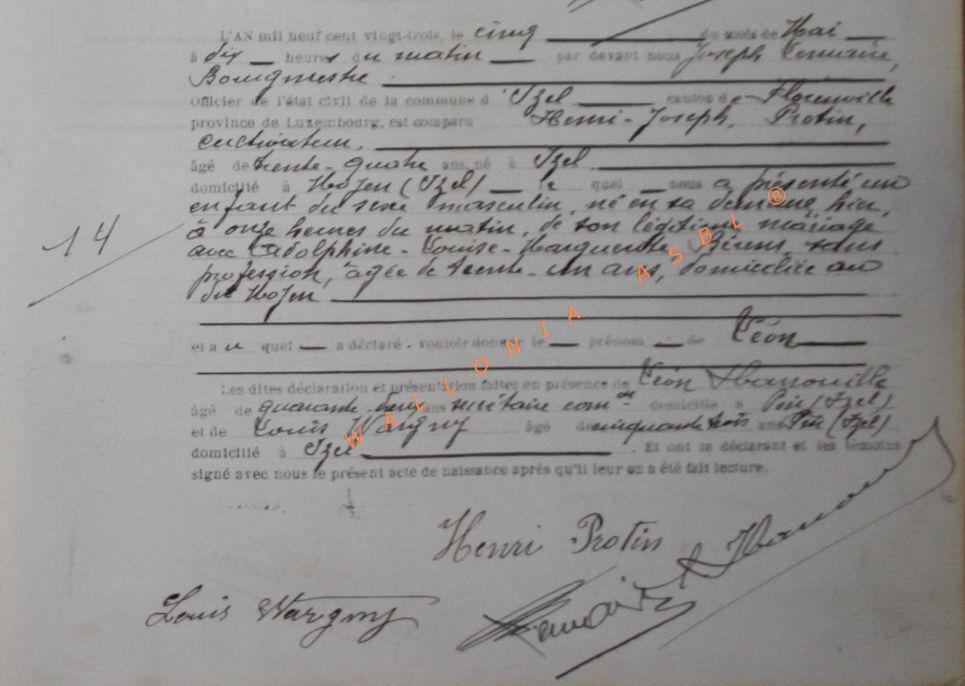 L'AN mil neuf cent vingt-trois, le cinq du mois de Mai
à dix heures du matin par devant nous Joseph Lemaire,
Bourgmestre
Officier de l'état civil de la commune d'Izel canton de Florenville
province de Luxembourg, est comparu Henri-Joseph Protin,
cultivateur,
âgé de trente-quatre ans né à Izel
domicilié à Moyen (Izel) le quel nous a présenté un
enfant du sexe masculin, né en sa demeure, hier,
à onze heures du matin, de son légitime mariage
avec Adolphine-Louise-Marguerite, sans
profession, âgée de trente-un ans, domiciliée au
dit Moyen
14
et au quel a déclaré vouloir donner le prénom de Léon
Les dites déclaration et présentation faites en présence de Léon Hanouille
âgé de quarante- ans secrétaire comal domicilié à Pin (Izel)
et de Louis Wargny âgé de cinquante trois ans Pin (Izel)
domicilié à Izel. Et ont le déclarant et les témoins
signé avec nous le présent acte de naissance après qu'il leur en a été fait lecture.
Henri Protin
Louis Wargny
WALLONIA ASBL ®